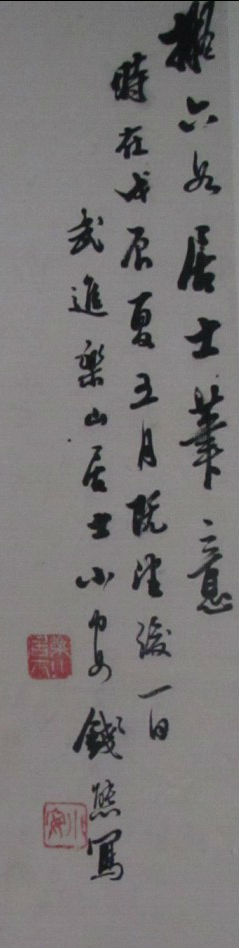 擬六如居士筆意
時在戊辰夏五月既望後一日
武進樂山居士小安錢熊寫
小安